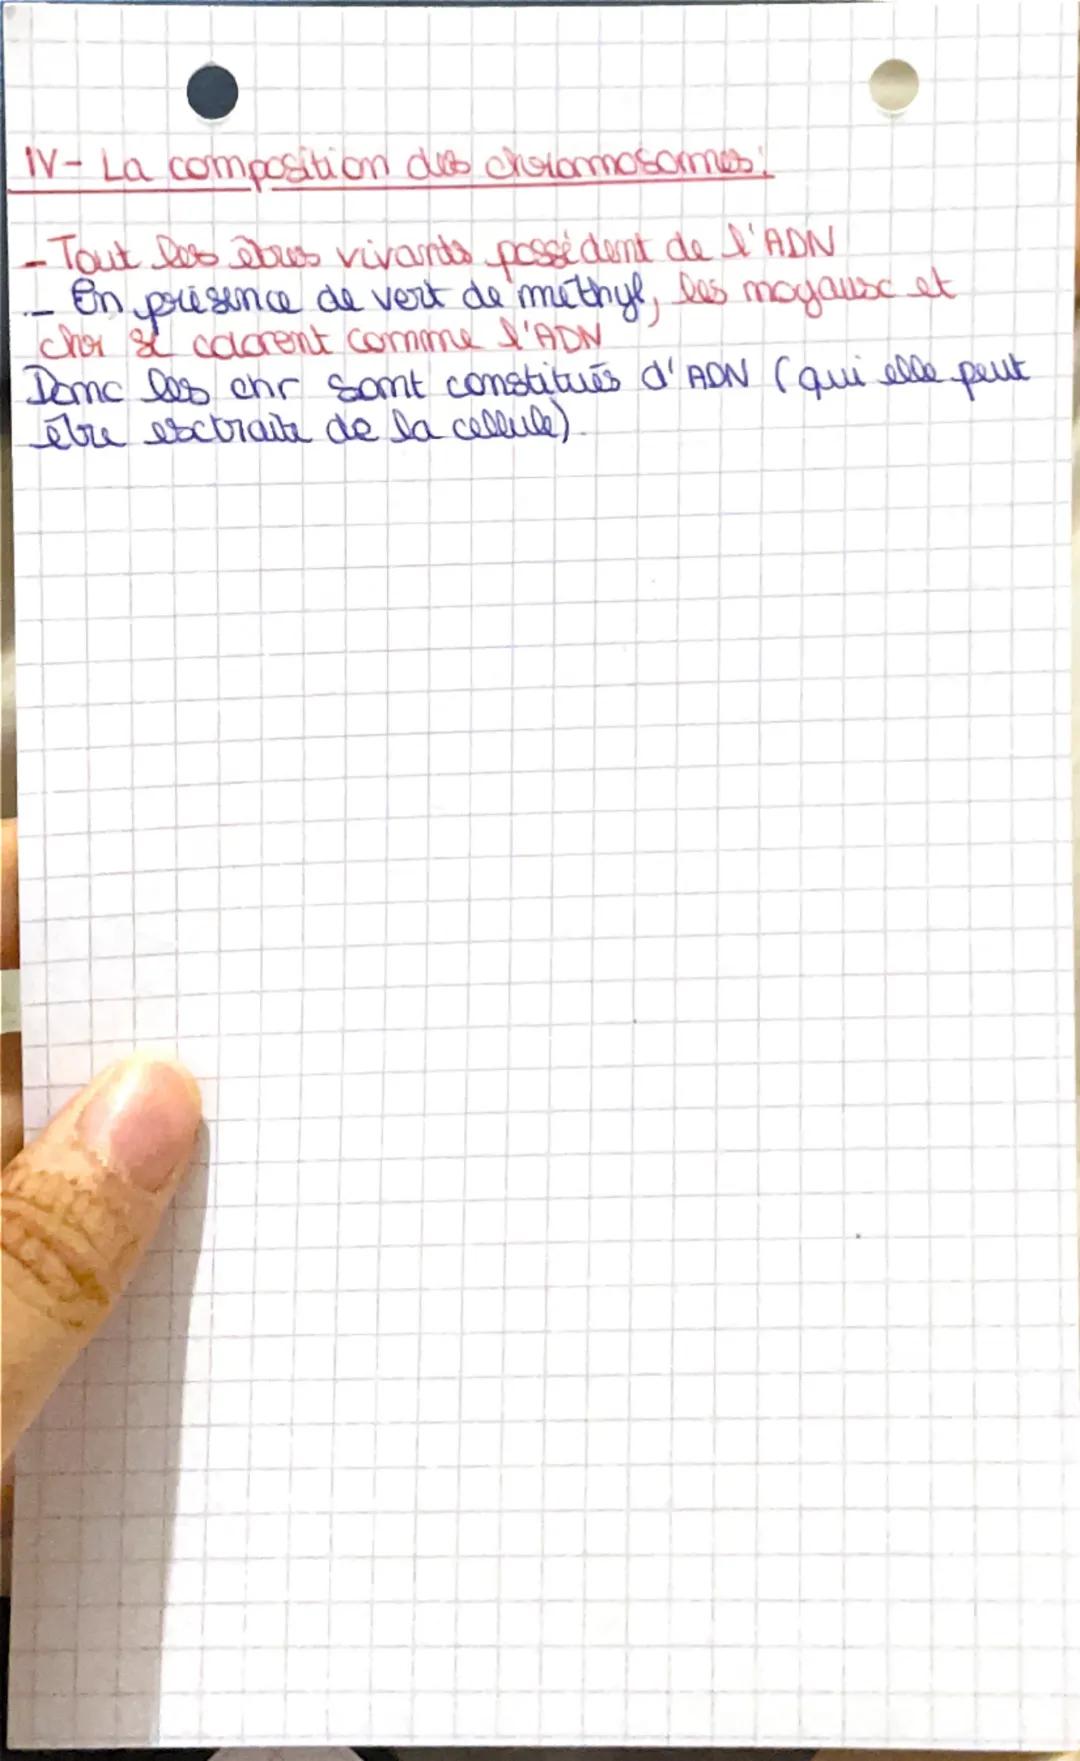 IV- La composition des chromosomes:
- Tout les êtres vivants possèdent de l'ADN
- En présence de vert de méthyl, les noyaux et
chr se colorent comme l'ADN
Donc les chr sont constitués d'ADN (qui elle peut
être extraite de la cellule).